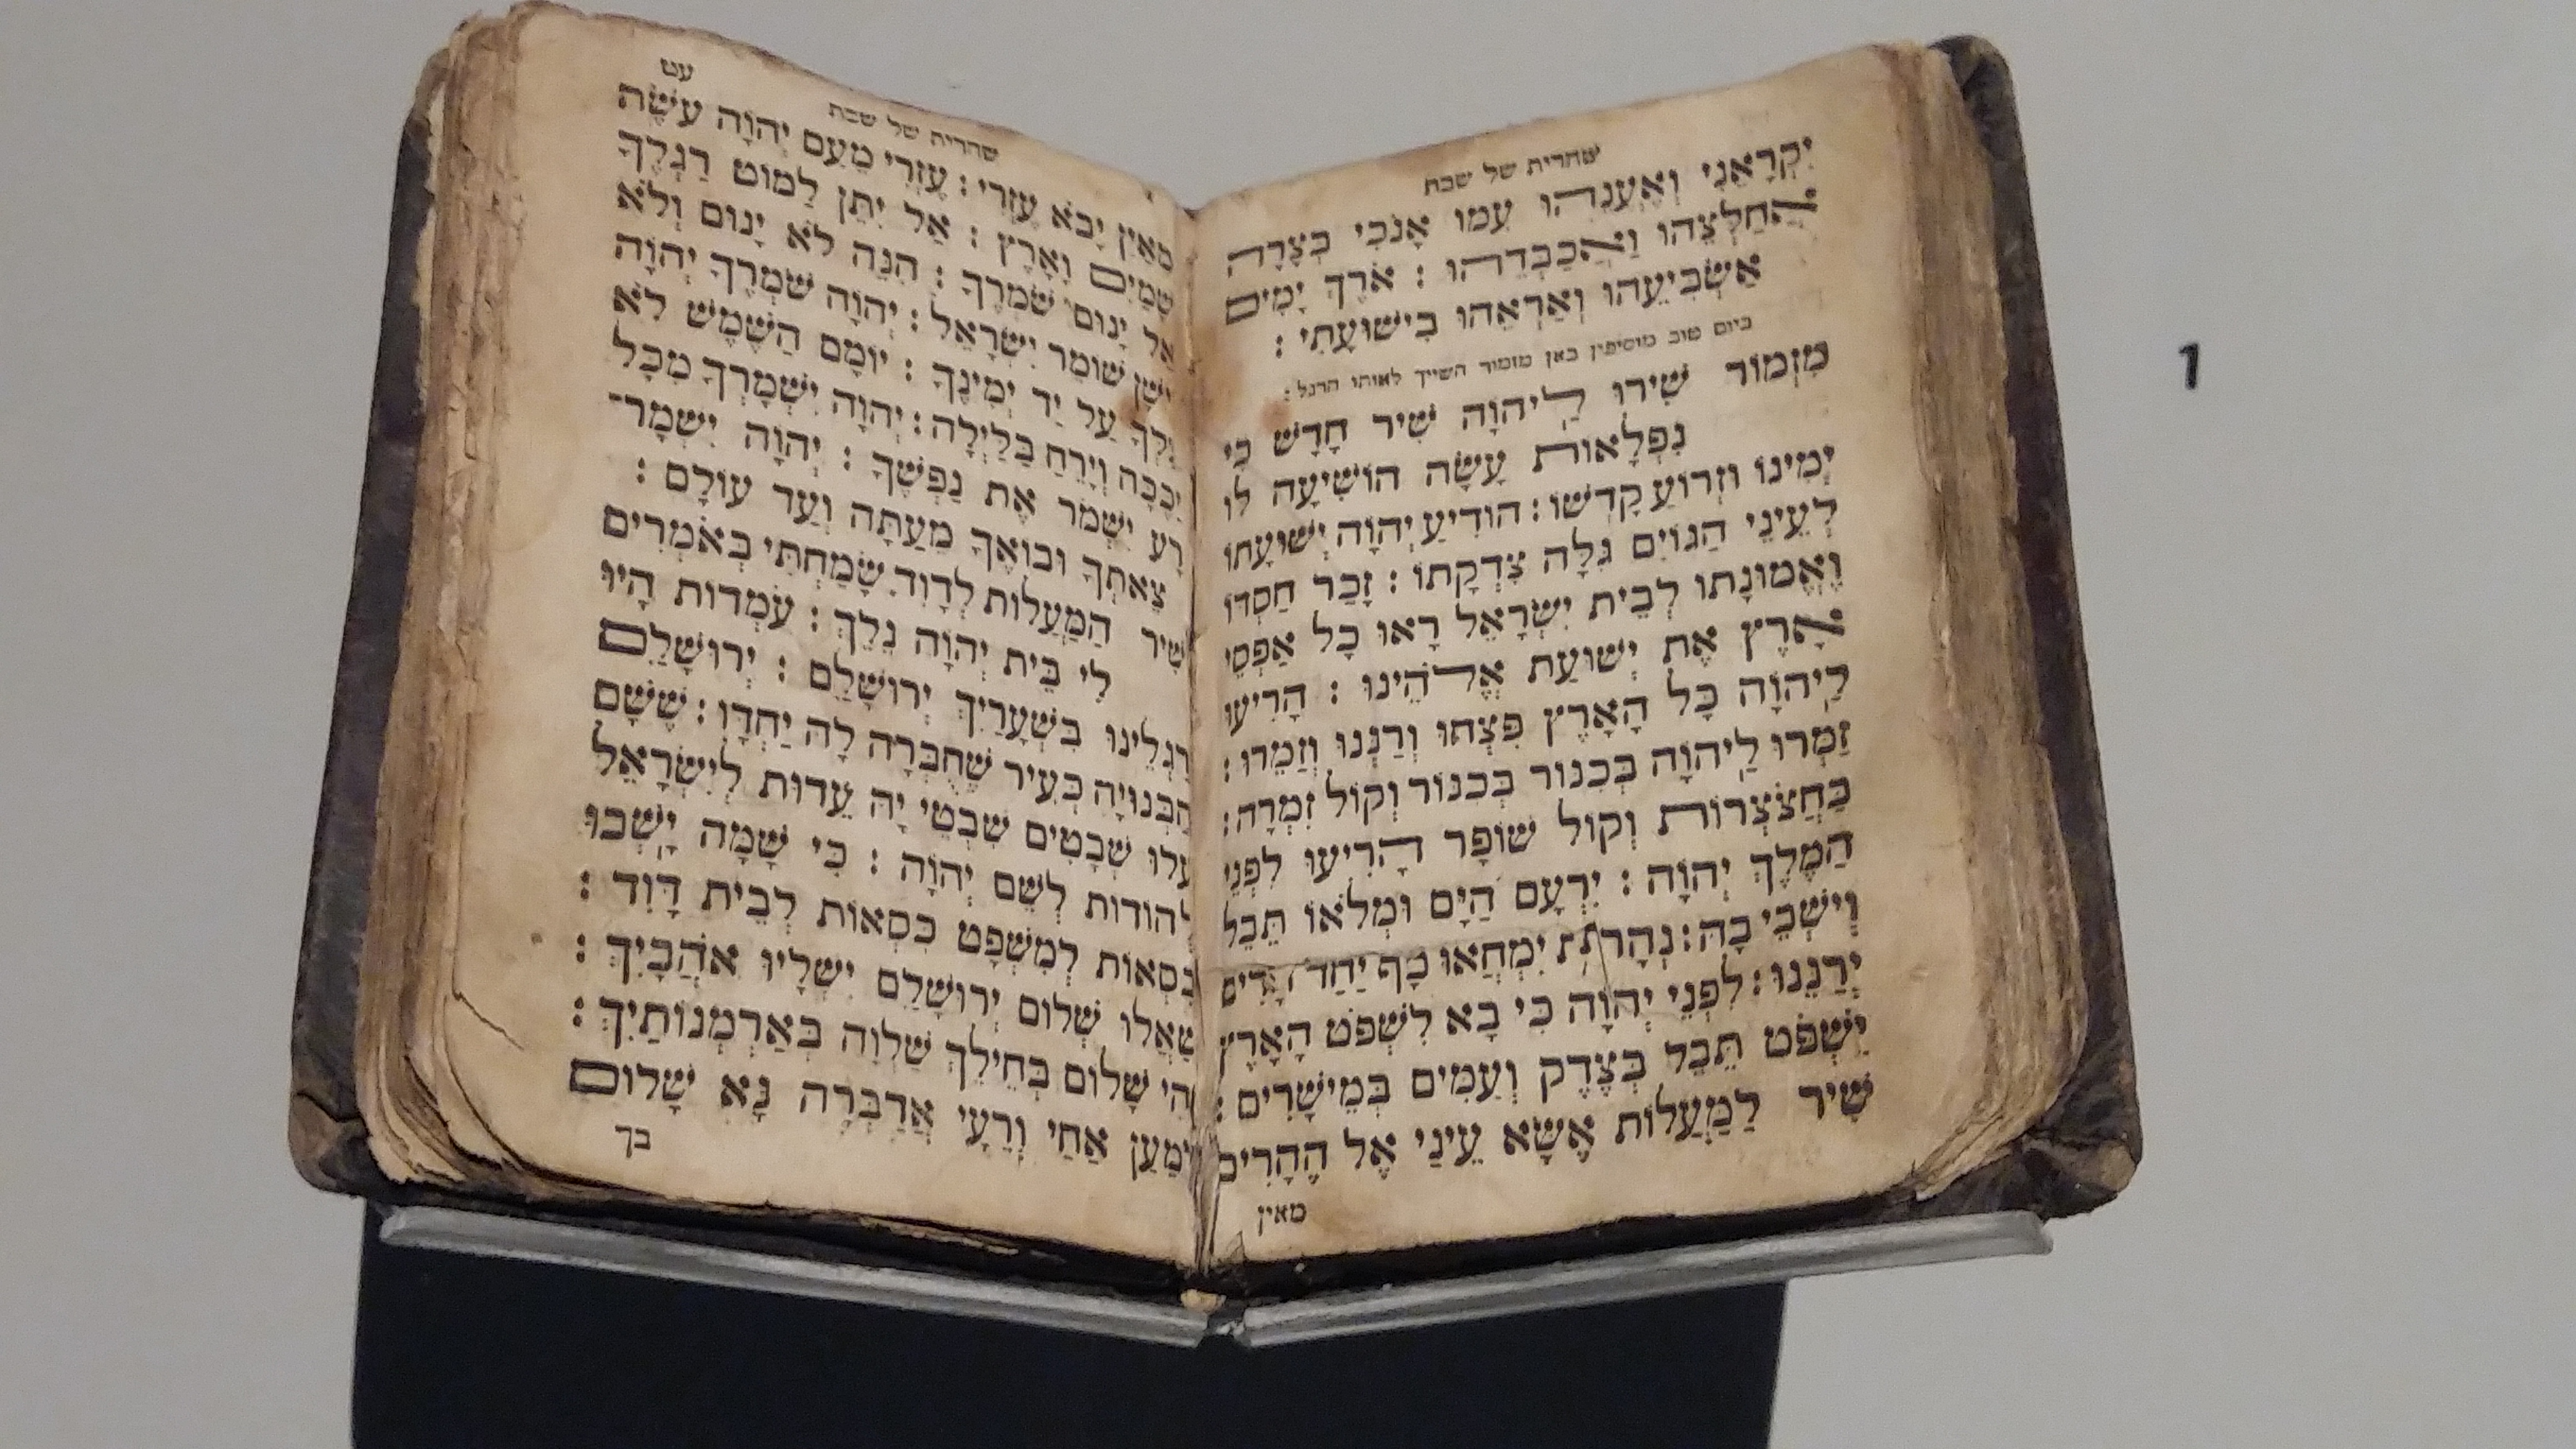 שחרית של שבת
יִקְרָאֵנִי וְאֶעֱנֵהוּ עִמּוֹ אָנֹכִי בְצָרָה
אֲחַלְּצֵהוּ וַאֲכַבְּדֵהוּ : אֹרֶךְ יָמִים
אַשְׂבִּיעֵהוּ וְאַרְאֵהוּ בִּישׁוּעָתִי :
ביום טוב מוסיפין כאן מזמור השייך לאותו הרגל :
מִזְמוֹר שִׁירוּ לַיהוָה שִׁיר חָדָשׁ כִּי
נִפְלָאוֹת עָשָׂה הוֹשִׁיעָה לּוֹ
יְמִינוֹ וּזְרוֹעַ קָדְשׁוֹ : הוֹדִיעַ יְהוָה יְשׁוּעָתוֹ
לְעֵינֵי הַגּוֹיִם גִּלָּה צִדְקָתוֹ : זָכַר חַסְדּוֹ
וֶאֱמוּנָתוֹ לְבֵית יִשְׂרָאֵל רָאוּ כָל אַפְסֵי
אָרֶץ אֶת יְשׁוּעַת אֱלֹהֵינוּ : הָרִיעוּ
לַיהוָה כָּל הָאָרֶץ פִּצְחוּ וְרַנְּנוּ וְזַמֵּרוּ :
זַמְּרוּ לַיהוָה בְּכִנּוֹר בְּכִנּוֹר וְקוֹל זִמְרָה :
בַּחֲצֹצְרוֹת וְקוֹל שׁוֹפָר הָרִיעוּ לִפְנֵי
הַמֶּלֶךְ יְהוָה : יִרְעַם הַיָּם וּמְלֹאוֹ תֵּבֵל
וְיֹשְׁבֵי בָהּ : נְהָרוֹת יִמְחֲאוּ כָף יַחַד הָרִים
יְרַנֵּנוּ : לִפְנֵי יְהוָה כִּי בָא לִשְׁפֹּט הָאָרֶץ
יִשְׁפֹּט תֵּבֵל בְּצֶדֶק וְעַמִּים בְּמֵישָׁרִים :
שִׁיר לַמַּעֲלוֹת אֶשָּׂא עֵינַי אֶל הֶהָרִים
מאין
עט
שחרית של שבת
מֵאַיִן יָבֹא עֶזְרִי : עֶזְרִי מֵעִם יְהוָה עֹשֵׂה
שָׁמַיִם וָאָרֶץ : אַל יִתֵּן לַמּוֹט רַגְלֶךָ
אַל יָנוּם שֹׁמְרֶךָ : הִנֵּה לֹא יָנוּם וְלֹא
יִישָׁן שׁוֹמֵר יִשְׂרָאֵל : יְהוָה שֹׁמְרֶךָ יְהוָה
צִלְּךָ עַל יַד יְמִינֶךָ : יוֹמָם הַשֶּׁמֶשׁ לֹא
יַכֶּכָּה וְיָרֵחַ בַּלָּיְלָה : יְהוָה יִשְׁמָרְךָ מִכָּל
רָע יִשְׁמֹר אֶת נַפְשֶׁךָ : יְהוָה יִשְׁמָר־
צֵאתְךָ וּבוֹאֶךָ מֵעַתָּה וְעַד עוֹלָם :
שִׁיר הַמַּעֲלוֹת לְדָוִד שָׂמַחְתִּי בְּאֹמְרִים
לִי בֵּית יְהוָה נֵלֵךְ : עֹמְדוֹת הָיוּ
רַגְלֵינוּ בִּשְׁעָרַיִךְ יְרוּשָׁלָםִ : יְרוּשָׁלַםִ
הַבְּנוּיָה כְּעִיר שֶׁחֻבְּרָה לָּהּ יַחְדָּו : שֶׁשָּׁם
עָלוּ שְׁבָטִים שִׁבְטֵי יָהּ עֵדוּת לְיִשְׂרָאֵל
לְהוֹדוֹת לְשֵׁם יְהוָה : כִּי שָׁמָּה יָשְׁבוּ
כִסְאוֹת לְמִשְׁפָּט כִּסְאוֹת לְבֵית דָּוִד :
שַׁאֲלוּ שְׁלוֹם יְרוּשָׁלָםִ יִשְׁלָיוּ אֹהֲבָיִךְ :
יְהִי שָׁלוֹם בְּחֵילֵךְ שַׁלְוָה בְּאַרְמְנוֹתָיִךְ :
לְמַעַן אַחַי וְרֵעָי אֲדַבְּרָה נָּא שָׁלוֹם
בך